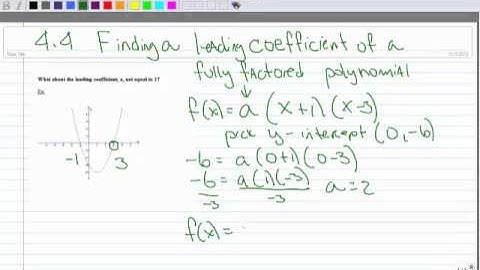 4.4 Finding a leading coefficient of a
fully factored polynomial
What about the leading coefficient, a, not equal to 1?
Ex.
f(x) = a (x+1)(x-3)
pick y-intercept (0,-6)
-6 = a(0+1)(0-3)
-6 = a(1)(-3)
-3 -3
a=2
f(x)=
-1
3